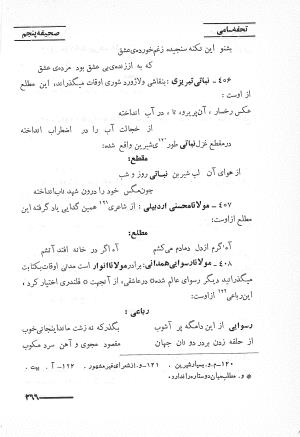 تحفه‌سامی صحیفه‌پنجم
بشنو این نکته سنجیده زغم‌خورده‌ی عشق
که به از زنده‌ی بی عشق بود مرده‌ی عشق
۴۰۶ - نباتی تبریزی: بنقاشی ولاژورد شوری اوقات میگذراند، این مطلع
از اوست:
عکس رخسار، آن‌پریرو، تا، در آب انداخته
از خجالت آب را در اضطراب انداخته
درمقطع غزل نباتی طور ۱۲۰ی شیرین واقع شده:
مقطع:
از هوای آن لب شیرین نباتی روز و شب
چون‌مگس خود را درون شهد ناب‌انداخته
۴۰۷ - مولانا محسنی اردبیلی: از شاعری ۱۲۱ همین گدایی یاد گرفته این
مطلع ازاوست:
مطلع:
آه‌گرم ازدل دمادم می‌کشم آه‌اگر در خانه افتد آتشم
۴۰۸ - مولانا رسوایی همدانی: برادر مولانا انوار است مدتی اوقات‌بکتابت
میگذرانید دیگر رسوای عالم شده در عاشقی، از آنجهت قلندری اختیار کرد،
این‌رباعی ۱۲۲ ازاوست:
رباعی:
رسوایی از این دامگه پر آشوب بگذر که نه زشت ماند اینجانی‌خوب
از حلقه زدن بر در دونان جهان مقصود مجوی و آهن سرد مکوب
۱۲۰-م.و.بسیارشیرین. ۱۲۱-و.ازشعرای غیرمشهور. ۱۲۲-آ. بیت.
و. مطلب‌میان دوستاره را ندارد
۳۶۹